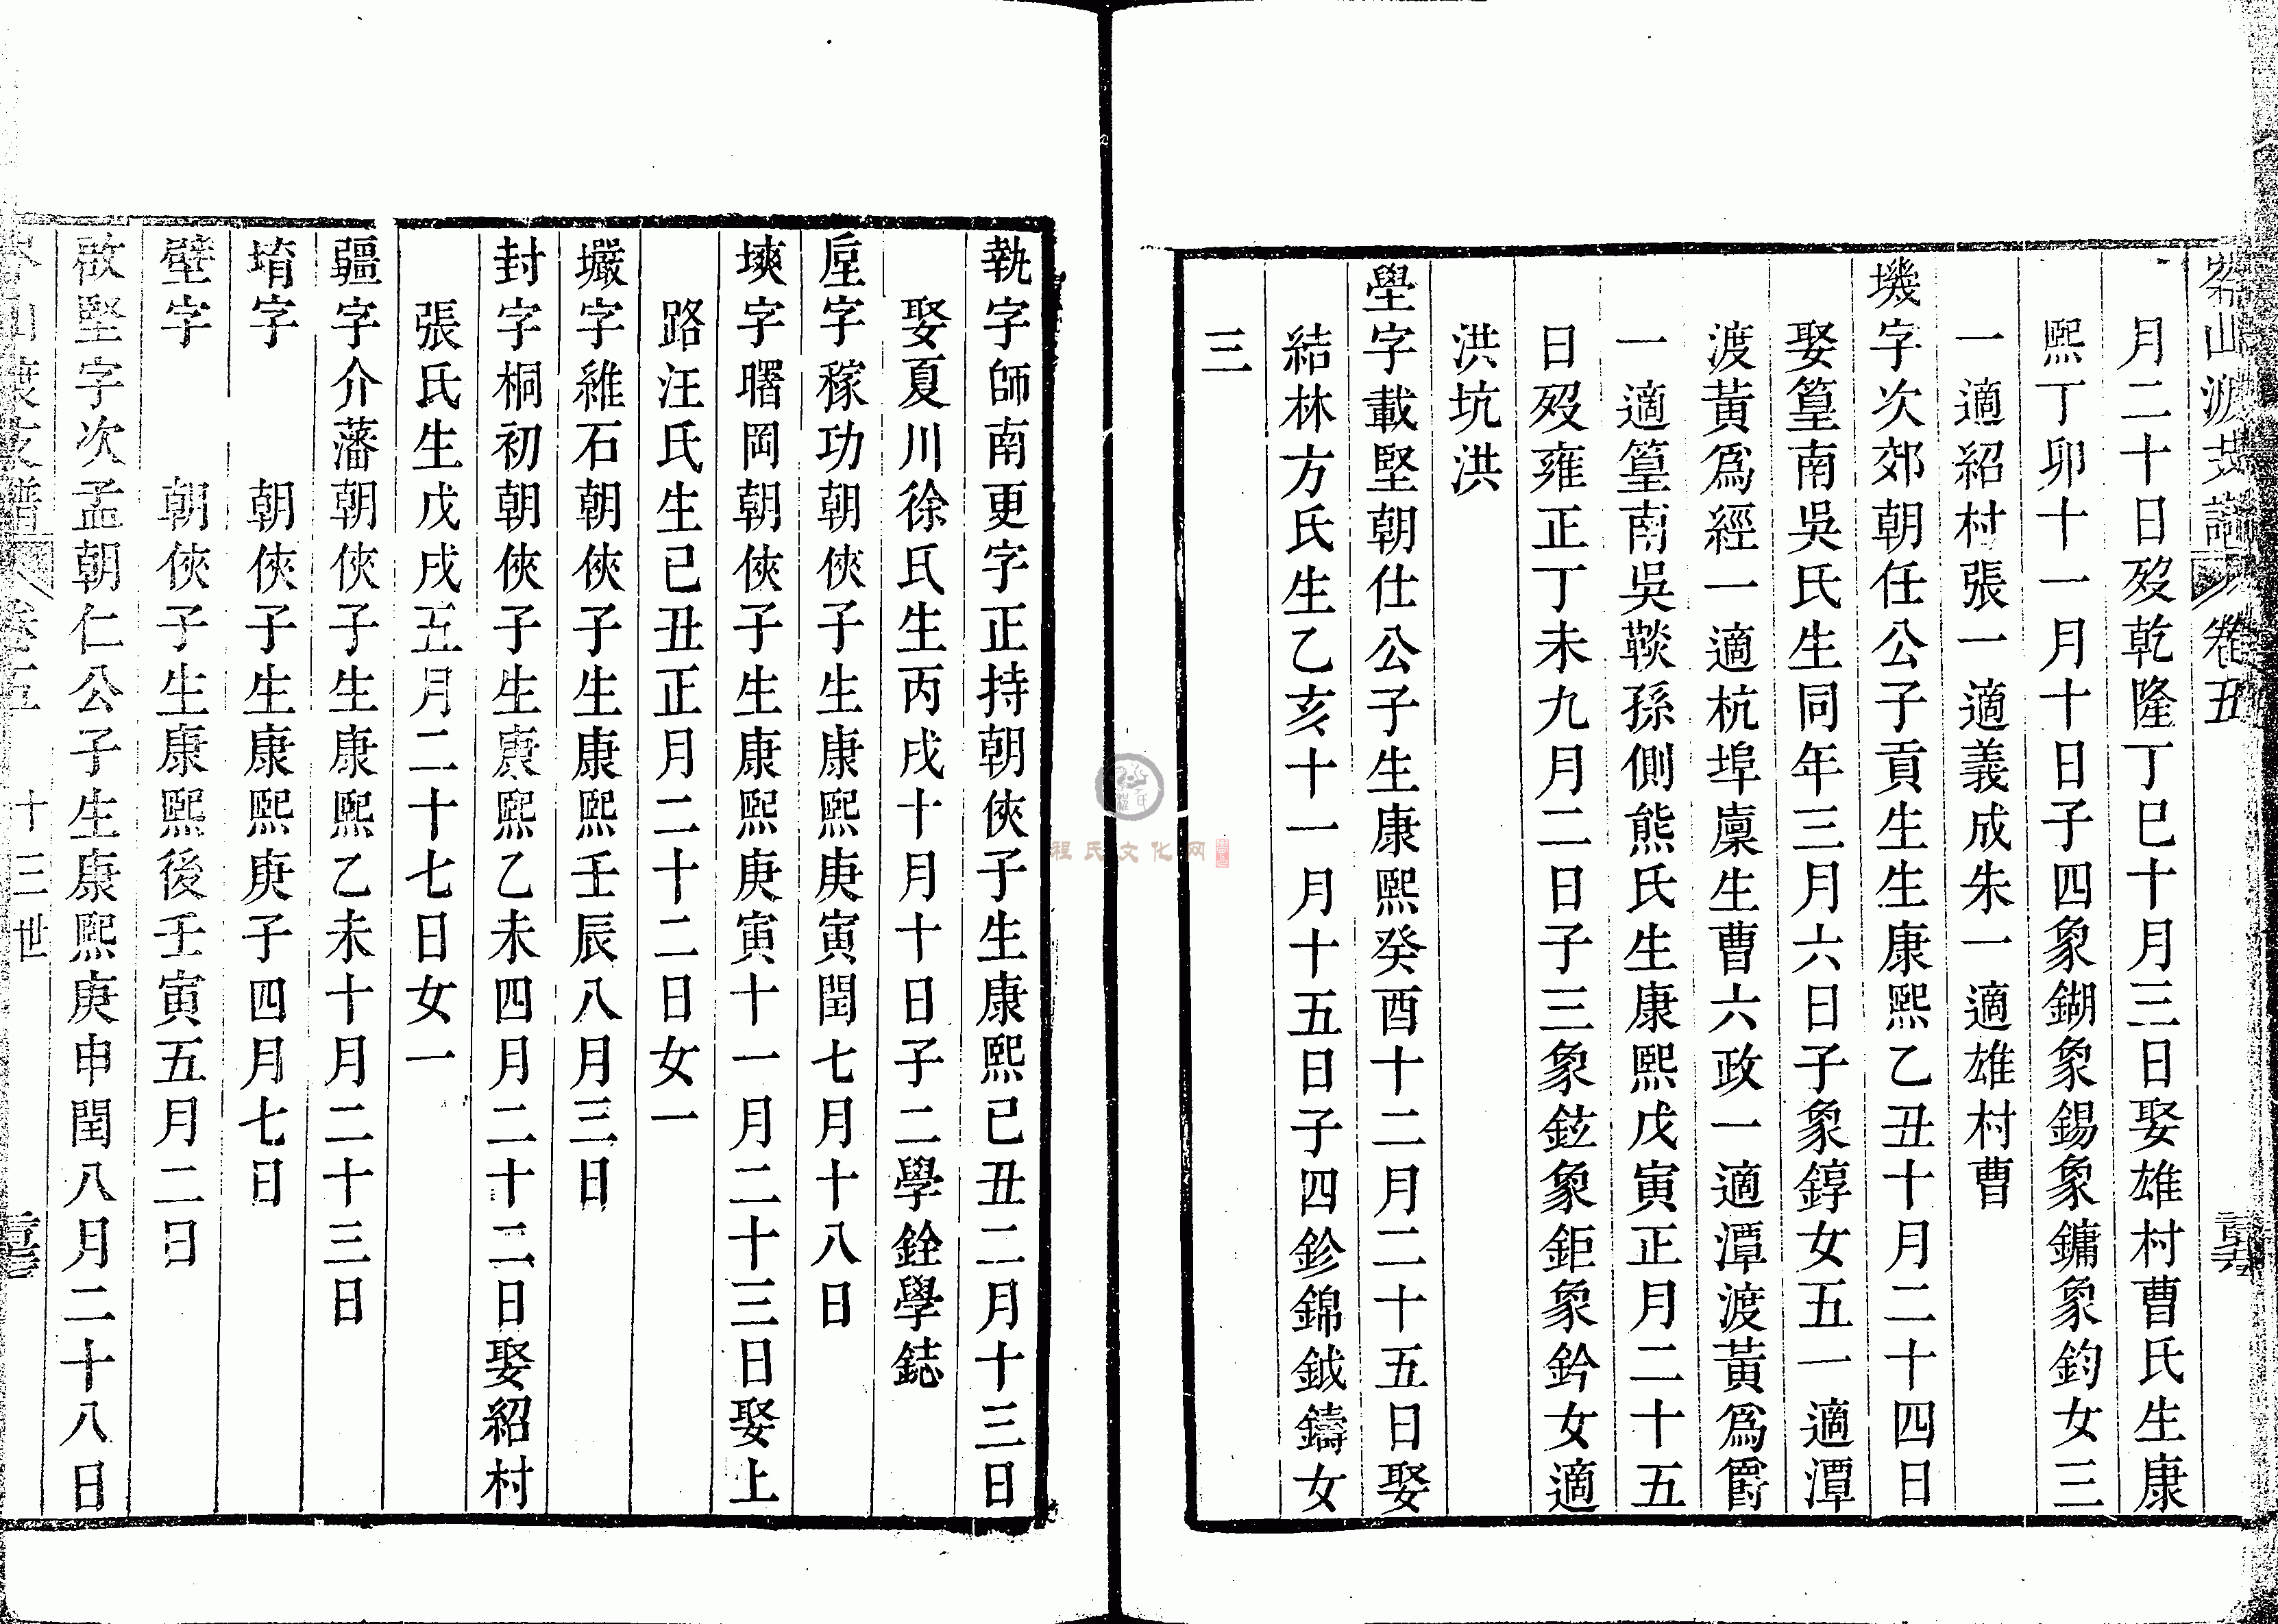 岑山渡支譜 卷五
月二十日歿乾隆丁巳十月三日娶雄村曹氏生康
熙丁卯十一月十日子四象鍸象錫象鏞象鈞女三
一適紹村張一適義成朱一適雄村曹
墢字次郊朝任公子貢生生康熙乙丑十月二十四日
娶篁南吳氏生同年三月六日子象錞女五一適潭
渡黃爲經一適杭埠廩生曹六政一適潭渡黃爲爵
一適篁南吳鞍孫側熊氏生康熙戊寅正月二十五
日歿雍正丁未九月二日子三象鉉象鉅象鈐女適
洪坑洪
壆字載堅朝仕公子生康熙癸酉十二月二十五日娶
結林方氏生乙亥十一月十五日子四鉁錦鉞鑄女
三
執字師南更字正持朝俠子生康熙己丑二月十三日
娶夏川徐氏生丙戌十月十日子二學銓學鋕
垕字稼功朝俠子生康熙庚寅閏七月十八日
塽字曙岡朝俠子生康熙庚寅十一月二十三日娶上
路汪氏生己丑正月二十二日女一
巗字維石朝俠子生康熙壬辰八月三日
封字桐初朝俠子生康熙乙未四月二十二日娶紹村
張氏生戊戌五月二十七日女一
疆字介藩朝俠子生康熙乙未十月二十三日
堉字 朝俠子生康熙庚子四月七日
壁字 朝俠子生康熙後壬寅五月二日
啟堅字次孟朝仁公子生康熙庚申閏八月二十八日
岑山渡支譜 卷五 十三世
程氏文化网